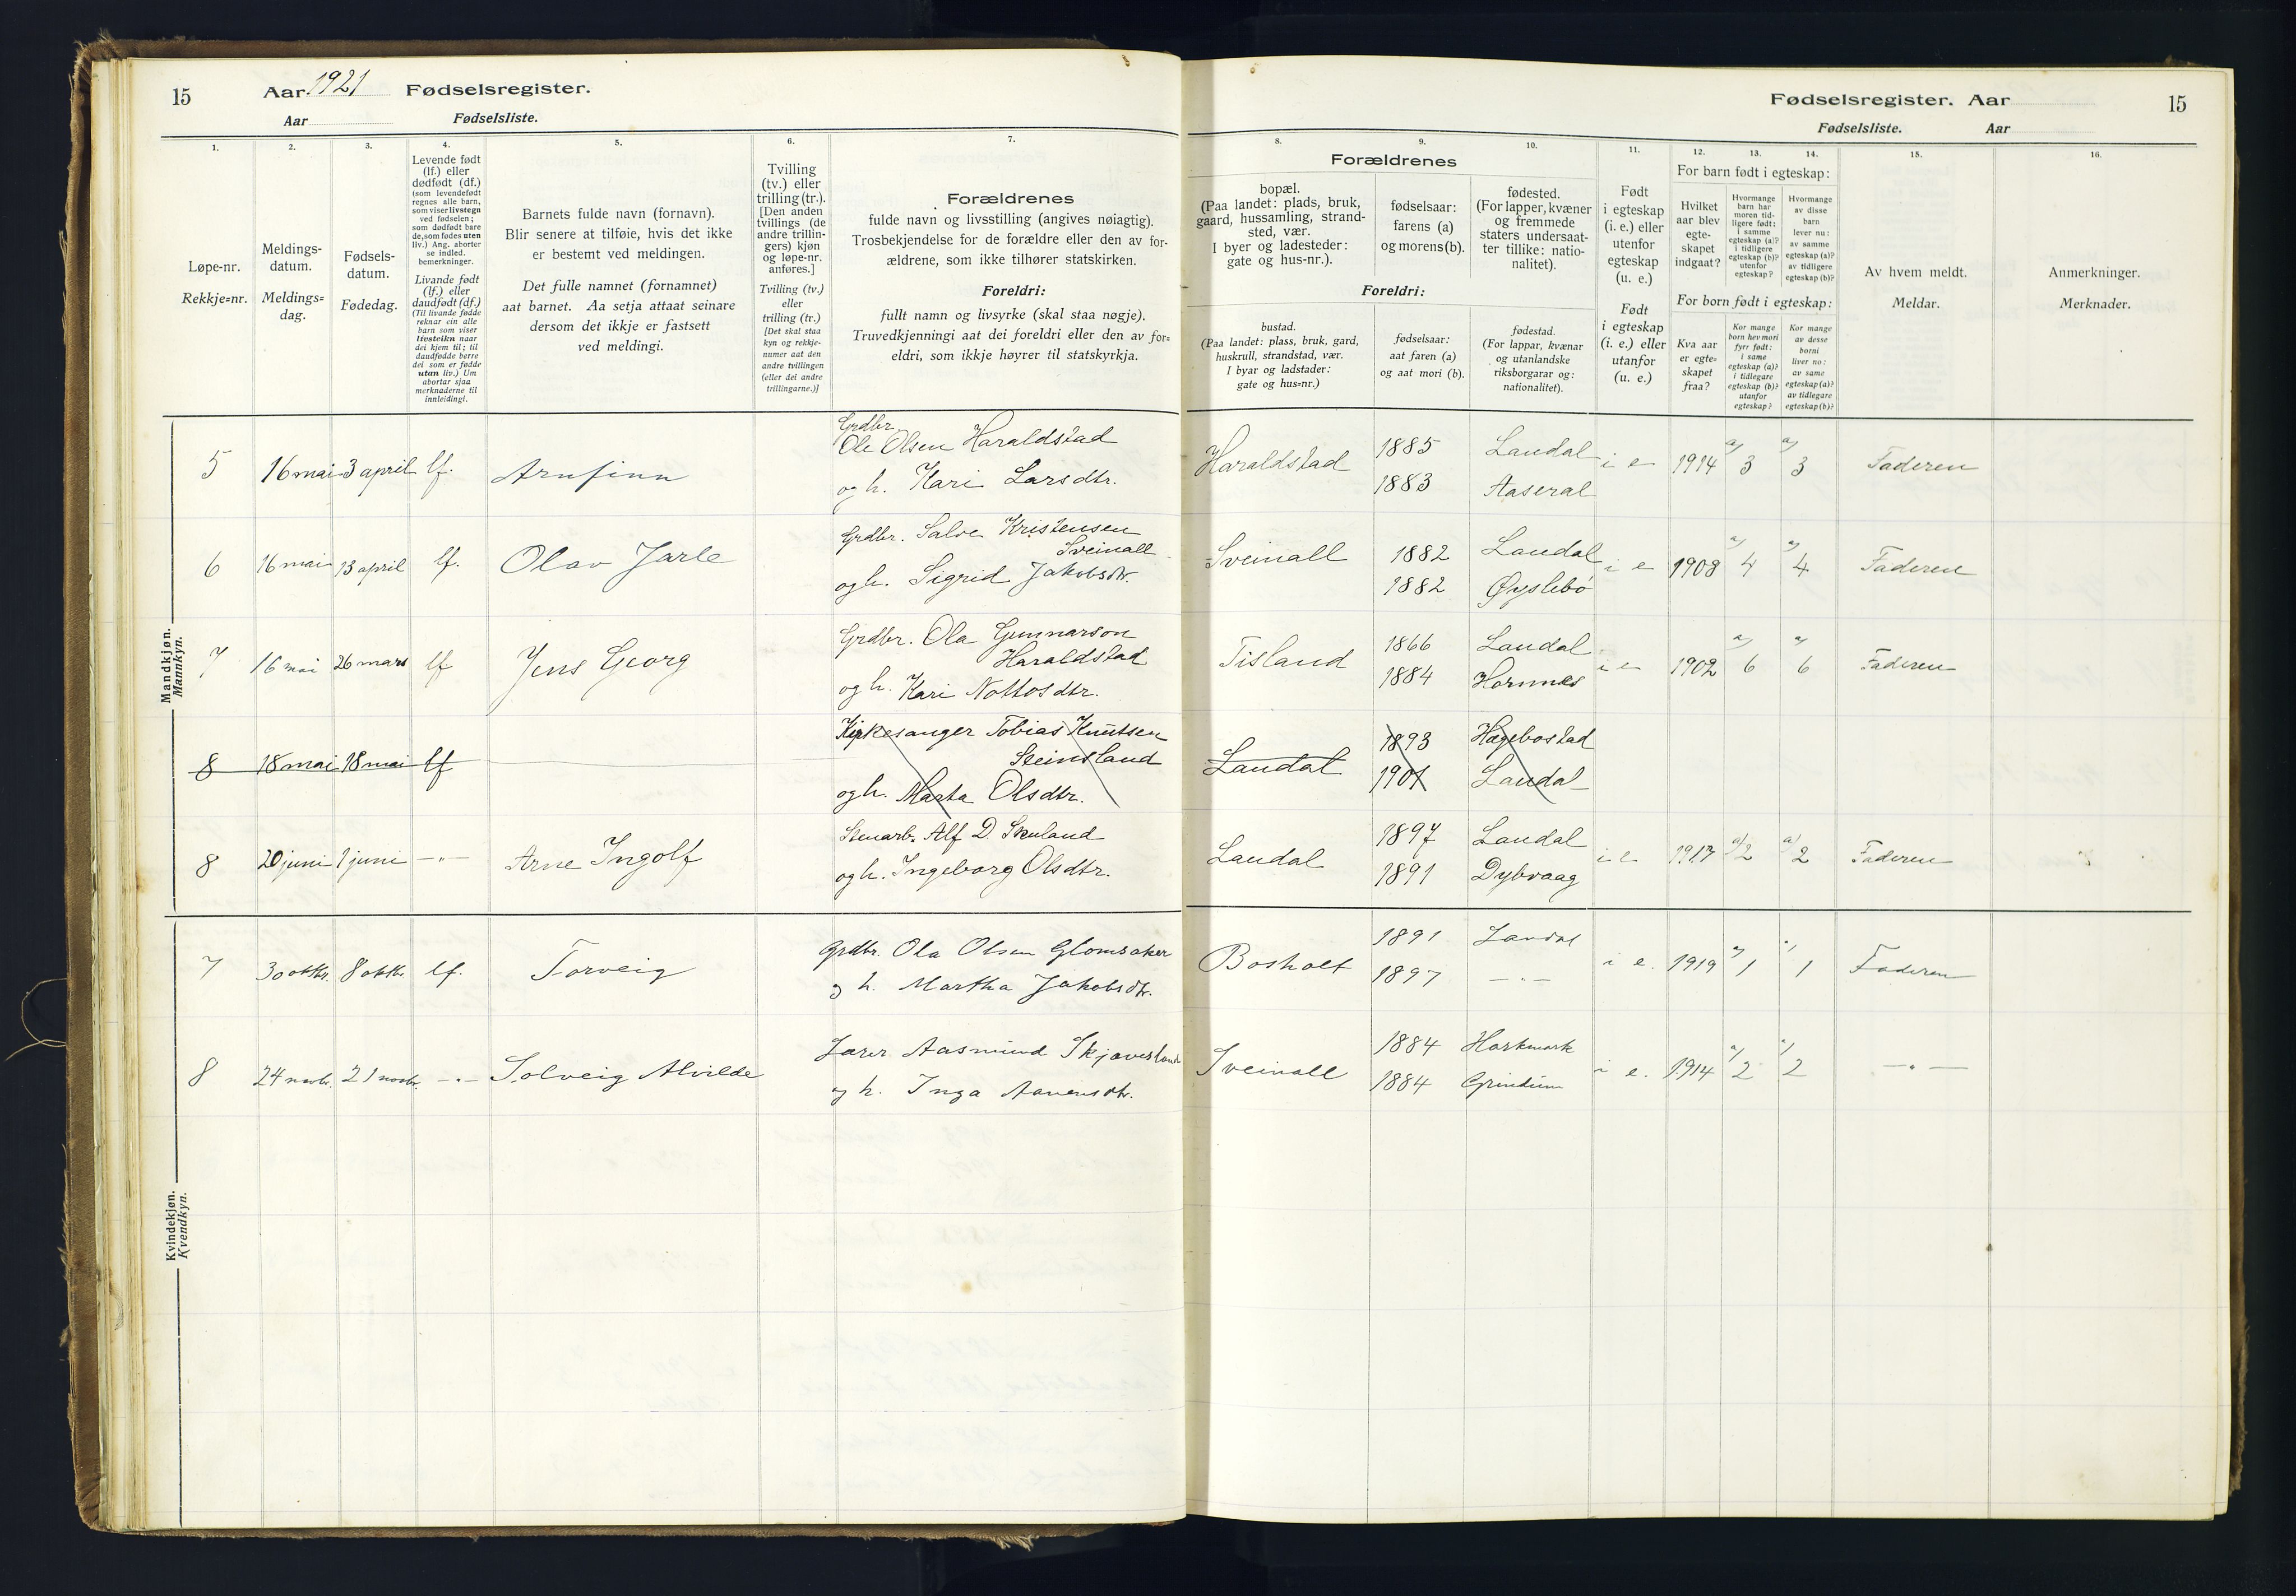 15 Aar 1921 Fødselsregister.
Aar Fødselsliste.
1.
Løpe-nr.
Rekkje=nr.
2.
Meldings-
datum.
Meldings=
dag.
3.
Fødsels-
datum.
Fødedag.
4.
Levende født
(lf.) eller
dødfødt (df.)
(som levendefødt
regnes alle barn,
som viser livstegn
ved fødselen;
som dødfødt bare
de, som fødes uten
liv.) Ang. aborter
se indled.
bemerkninger.
Livande født
(lf.) eller
daudfødt (df.)
(Til livande fødde
reknar ein alle
barn som viser
livsteikn naar
dei kjem til; til
daudfødde berre
dei som er fødde
utan liv.) Um
abortar sjaa
merknaderne til
innleidingi.
5.
Barnets fulde navn (fornavn).
Blir senere at tilføie, hvis det ikke
er bestemt ved meldingen.
Det fulle namnet (fornamnet)
aat barnet. Aa setja attaat seinare
dersom det ikkje er fastsett
ved meldingi.
6.
Tvilling
(tv.) eller
trilling (tr.).
[Den anden
tvillings (de
andre trillin-
gers) kjøn
og løpe-nr.
anføres.]
Tvilling (tv.)
eller
trilling (tr.)
[Det skal staa
kyn og rekkje-
numer aat den
andre tvillingen
(eller dei andre
trillingarne.)]
7.
Forældrenes
fulde navn og livsstilling (angives nøiagtig).
Trosbekjendelse for de forældre eller den av for-
ældrene, som ikke tilhører statskirken.
Foreldri:
fullt namn og livsyrke (skal staa nøgje).
Truvedkjenningi aat dei foreldri eller den av for=
eldri, som ikkje høyrer til statskyrkja.
Fødselsregister. Aar 15
Fødselsliste. Aar
Forældrenes
8.
bopæl.
(Paa landet: plads, bruk,
gaard, hussamling, strand-
sted, vær.
I byer og ladesteder:
gate og hus-nr.).
9.
fødselsaar:
farens (a)
og morens (b).
10.
fødested.
(For lapper, kvæner
og fremmede
staters undersaat-
ter tillike: natio-
nalitet).
Foreldri:
bustad.
(Paa landet: plass, bruk, gard,
huskrull, strandstad, vær.
I byar og ladstader:
gate og hus=nr.)
fødselsaar:
aat faren (a)
og aat mori (b).
fødestad.
(For lappar, kvænar
og utanlandske
riksborgarar og:
nationalitet).
11.
Født
i egteskap
(i. e.) eller
utenfor
egteskap
(u. e.)
Født
i egteskap
(i. e.) eller
utanfor
(u. e.)
12. 13. 14.
For barn født i egteskap:
Hvilket
aar blev
egte-
skapet
indgaat?
Hvormange
barn har
moren tid-
ligere født:
i samme
egteskap (a)?
i tidligere
egteskap (b)?
utenfor
egteskap?
Hvormange
av disse
barn
lever nu:
av samme
egteskap (a)?
av tidligere
egteskap (b)?
For born født i egteskap:
Kva aar
er egte=
skapet
fraa?
Kor mange
born hev mori
fyrr født:
i same
egteskap (a)?
i tidlegare
egteskap (b)?
utanfor
egteskap?
Kor mange
av desse
borni
liver no:
av same
egteskap (a)?
av tidlegare
egteskap (b)?
15.
Av hvem meldt.
Meldar.
16.
Anmerkninger.
Merknader.
Mandkjøn.
Mannkyn.
5 16 mai 3 april lf. Arnfinn Grdbr. Ole Olsen Haraldstad
og h. Kari Larsdtr.
Haraldstad 1885 Laudal i e 1914 a) 3 a) 3 Faderen
1883 Aaseral
6 16 mai 13 april lf. Olav Jarle Grdbr. Salve Kristensen
Sveinall
og h. Sigrid Jakobsdtr.
Sveinall 1882 Laudal i e 1908 a) 4 a) 4 Faderen
1882 Øyslebö
7 16 mai 26 mars lf Jens Georg Grdbr. Ola Gunnarson
Haraldstad
og h. Kari Nottosdtr.
Tisland 1866 Laudal i e 1902 a) 6 a) 6 Faderen
1884 Hornnes
8 18 mai 18 mai lf Kirkesanger Tobias Knutsen
Steinsland
og h. Marta Olsdtr.
Laudal 1893 Hægebostad
1901 Laudal
8 20 juni 1 juni -"- Arne Ingolf Stenarb. Alf D. Skuland
og h. Ingeborg Olsdtr.
Laudal 1897 Laudal i e 1917 a) 2 a) 2 Faderen
1891 Dybvaag
Kvindekjøn.
Kvendkyn.
7 30 oktbr. 8 oktbr. lf. Torveig Grdbr. Ola Olsen Glomsaker
og h. Martha Jakobsdtr.
Bosholt 1891 Laudal i e. 1919 a) 1 a) 1 Faderen
1897 -"-
8 24 novbr. 21 novbr. -"- Solveig Alvilde Lærer Aasmund Skjævesland
og h. Inga Aanensdtr.
Sveinall 1884 Harkmark i e. 1914 a) 2 a) 2 -"-
1884 Grindum